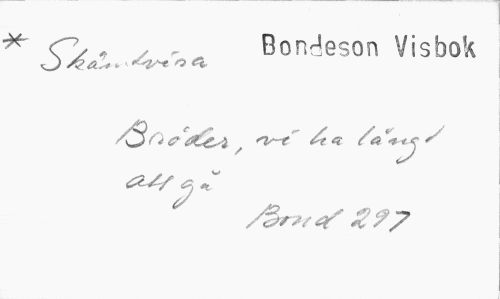 * Skämtvisa Bondeson Visbok
Bröder, vi ha långt
att gå
Bond 297